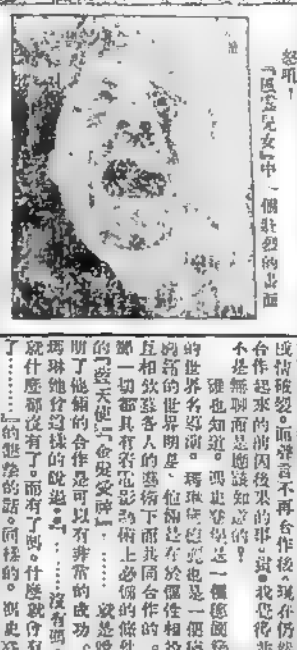 怒吼！
『風雲兒女』中一個壯烈的畫面
感情破裂。而聲言不再合作後。現在仍然
合作起來的前因後果的事蹟。我覺得非
不是無聊而是應該知道的？
誰也知道。馮史登堡是一個德國籍
的世界名導演。瑪琳黛德麗也是一個德
國籍的世界明星、他倆是在於個性相投
互相欽慕各人的藝術下而共同合作的。
那一切都具有着電影藝術上必備的條件
的『藍天使』『金髮愛神』……就是證
明了他倆的合作是可以有非常的成功。
瑪琳她曾這樣的說過。『……沒有馮
就什麼都沒有了。而有了馮。什麼就會有
了………』的懇摯的話。同樣的。馮史登